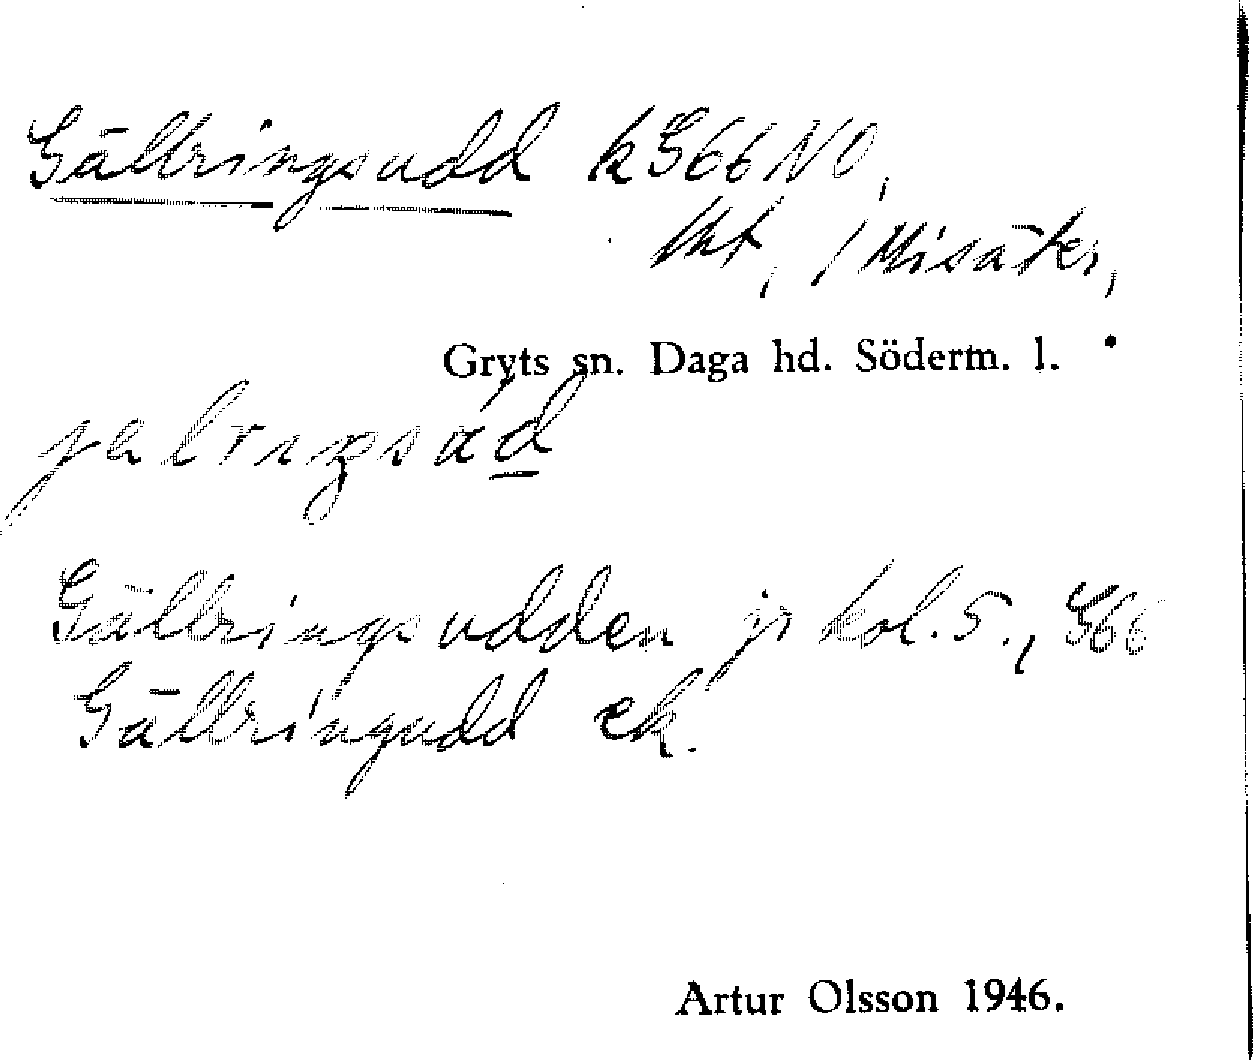 Gällringsudd k G66 NO,
Mt, / Misäter,
Gryts sn. Daga hd. Söderm. l.
jalrıŋsúd
Gällringsudden jr kol. 5., G66
Gällringudd ek.
Artur Olsson 1946.